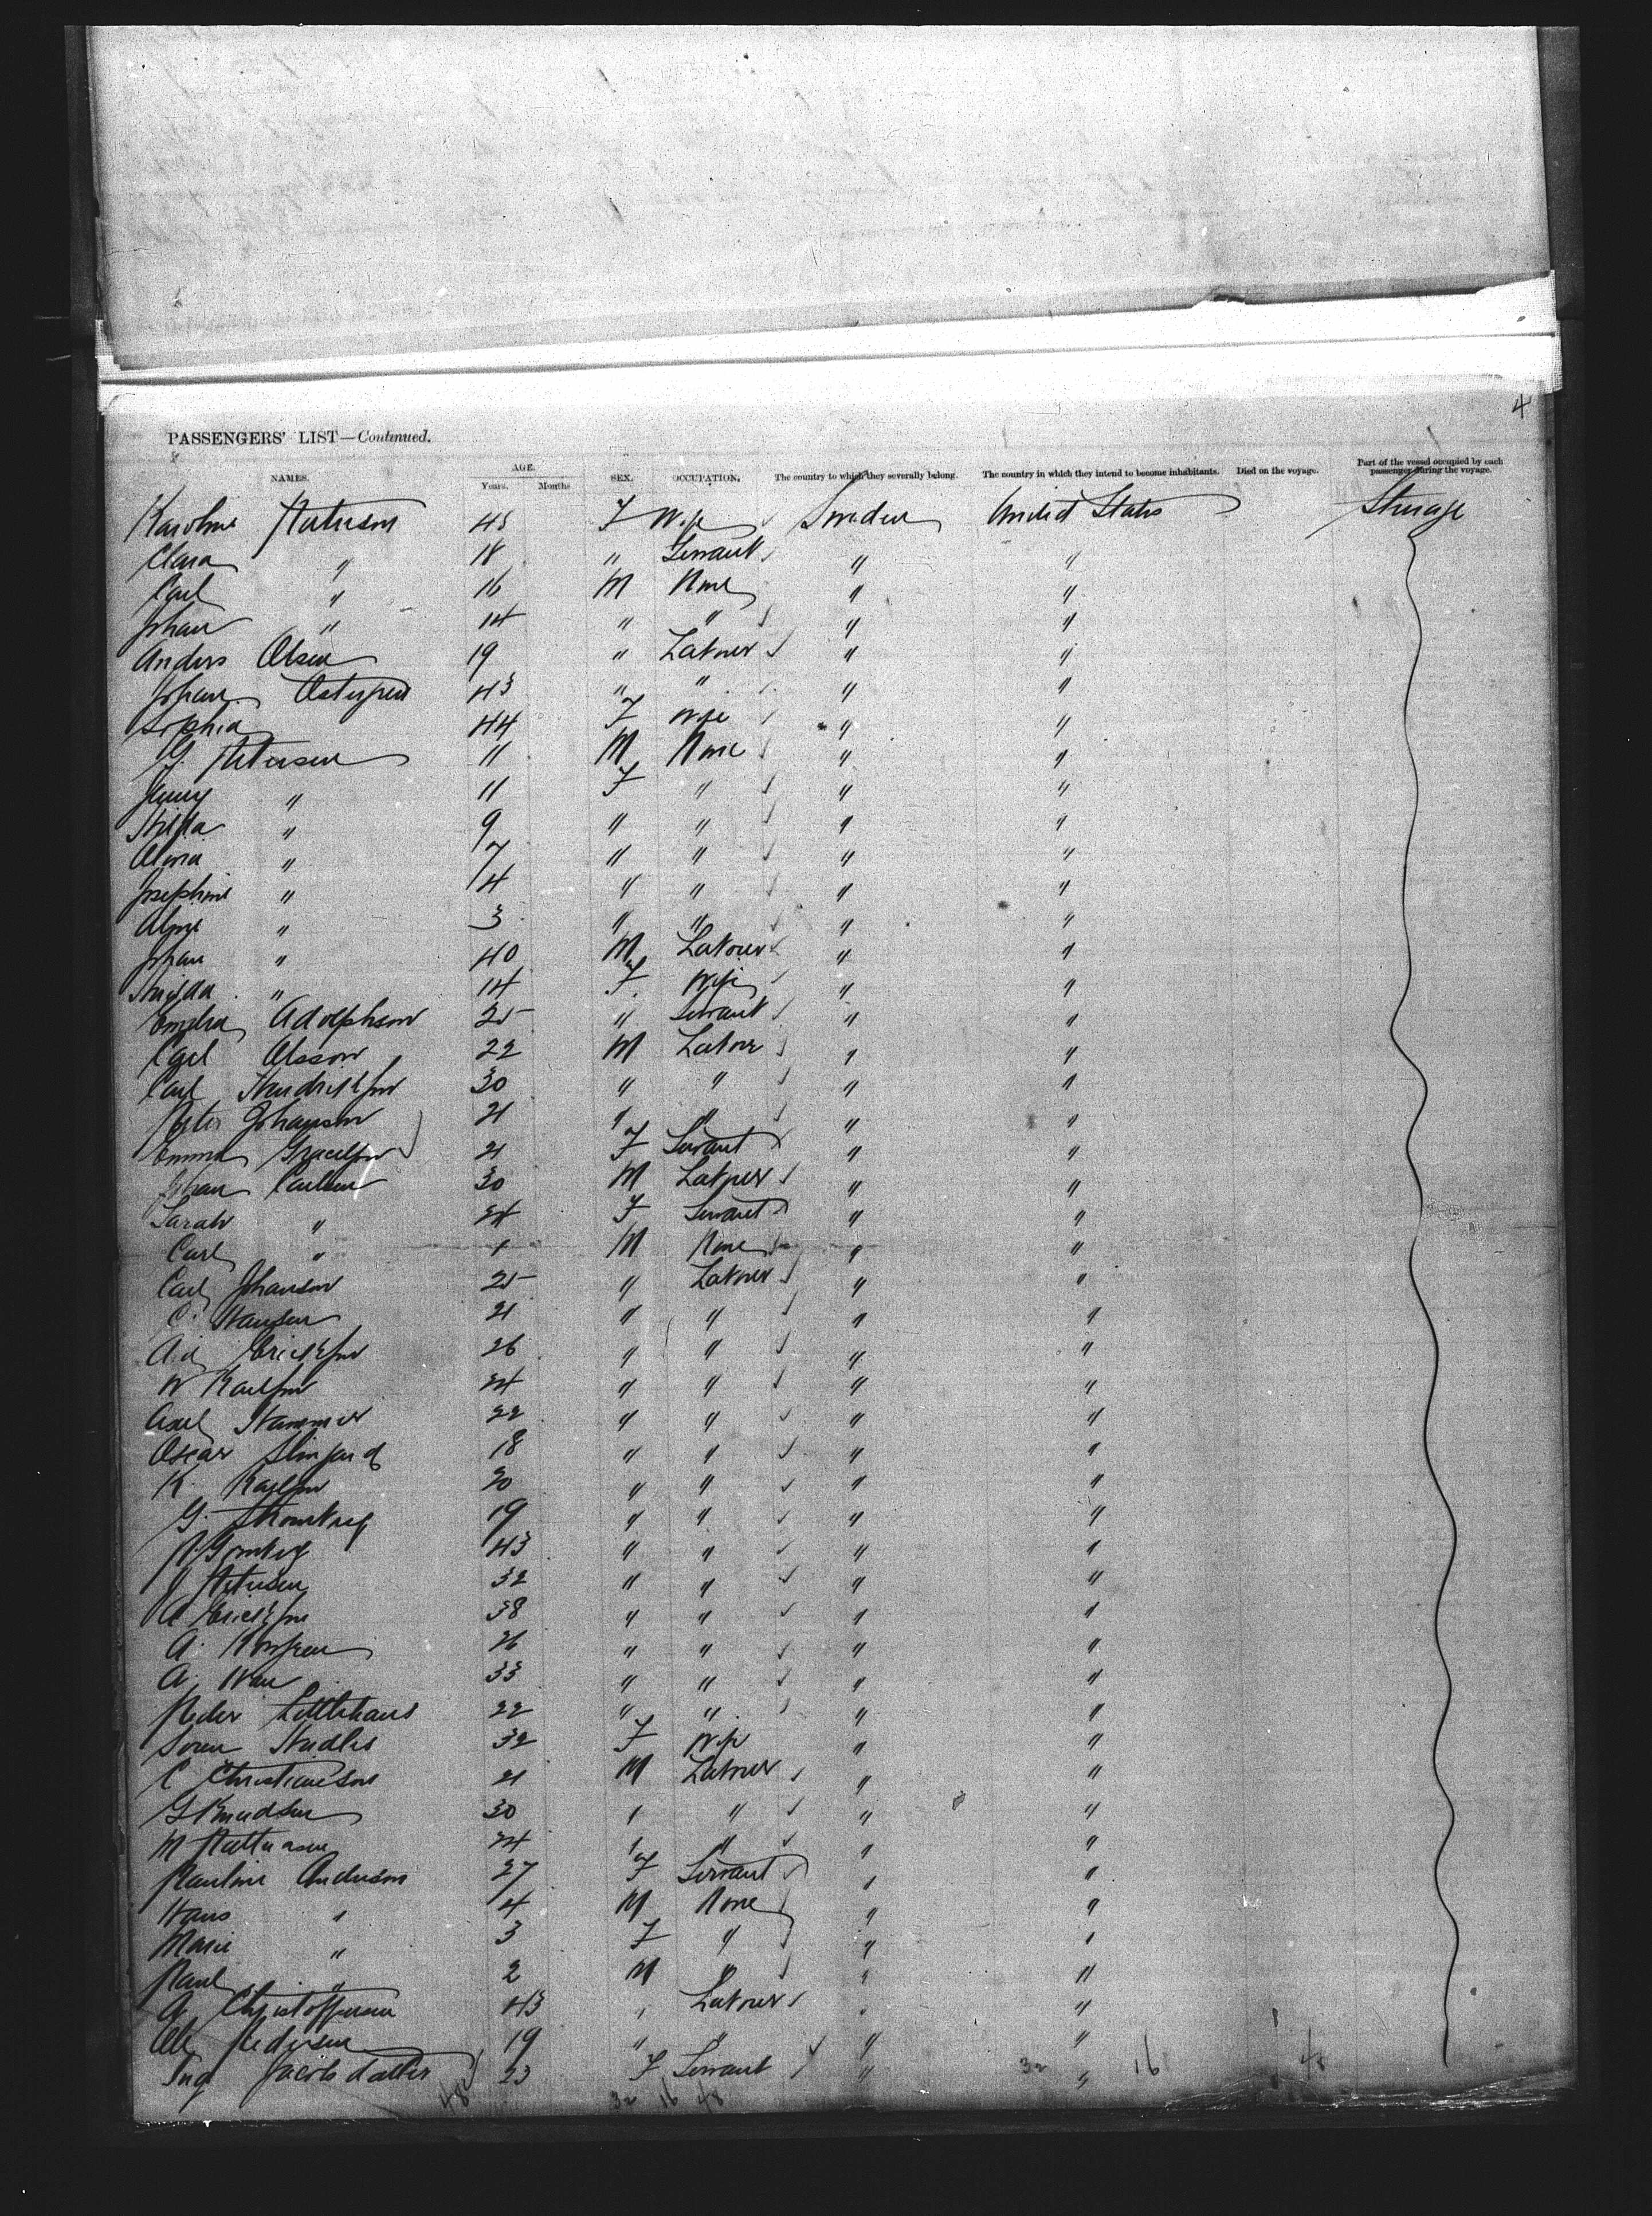 4
PASSENGERS' LIST—Continued.
NAMES. AGE. Years. Months SEX. OCCUPATION. The country to which they severally belong. The country in which they intend to become inhabitants. Died on the voyage. Part of the vessel occupied by each passenger during the voyage.
Karoline Peterson 45 F Wife Sweden United States Sterage
Clara " 18 " Servant " "
Carl " 16 M None " "
Johan " 14 " " " "
Anders Olsen 19 " Labourer " "
Johan 43 " " " "
Sophia 44 F Wife " "
G. Petersen 11 M None " "
Jenny " 11 F " " "
Hilda " 9 " " " "
" 7 " " " "
Josephine " 4 " " " "
" 3 " " " "
Johan " 40 M Labourer " "
" 14 F Wife " "
Adolphson 25 " Servant " "
Olsson 22 M Labour " "
Carl Hendrickson 30 " " " "
Peter Johanson 21 " " " "
Emma 21 F Servant " "
Johan Carlson 30 M Labourer " "
Sarah " 24 F Servant " "
Carl " 1 M None " "
Carl Johanson 25 " Labourer " "
C. Hansen 21 " " " "
Erickson 26 " " " "
W Karlson 24 " " " "
Axel Hammer 22 " " " "
Oscar 18 " " " "
K. Karlson 20 " " " "
G. 19 " " " "
43 " " " "
J Petersen 32 " " " "
A Erickson 38 " " " "
A. 26 " " " "
A. 33 " " " "
Peder 22 " " " "
Soren 32 F Wife " "
C Christianson 21 M Labourer " "
G Knudsen 30 " " " "
M 24 " " " "
Pauline Anderson 27 F Servant " "
Hans " 4 M None " "
Marie " 3 F " " "
Paul " 2 M " " "
A Christoffersen 43 " Labourer " "
Ole Pedersen 19 " " " "
Ing Jacobsdatter 23 F Servant " " 32 16 48
48 32 16 48